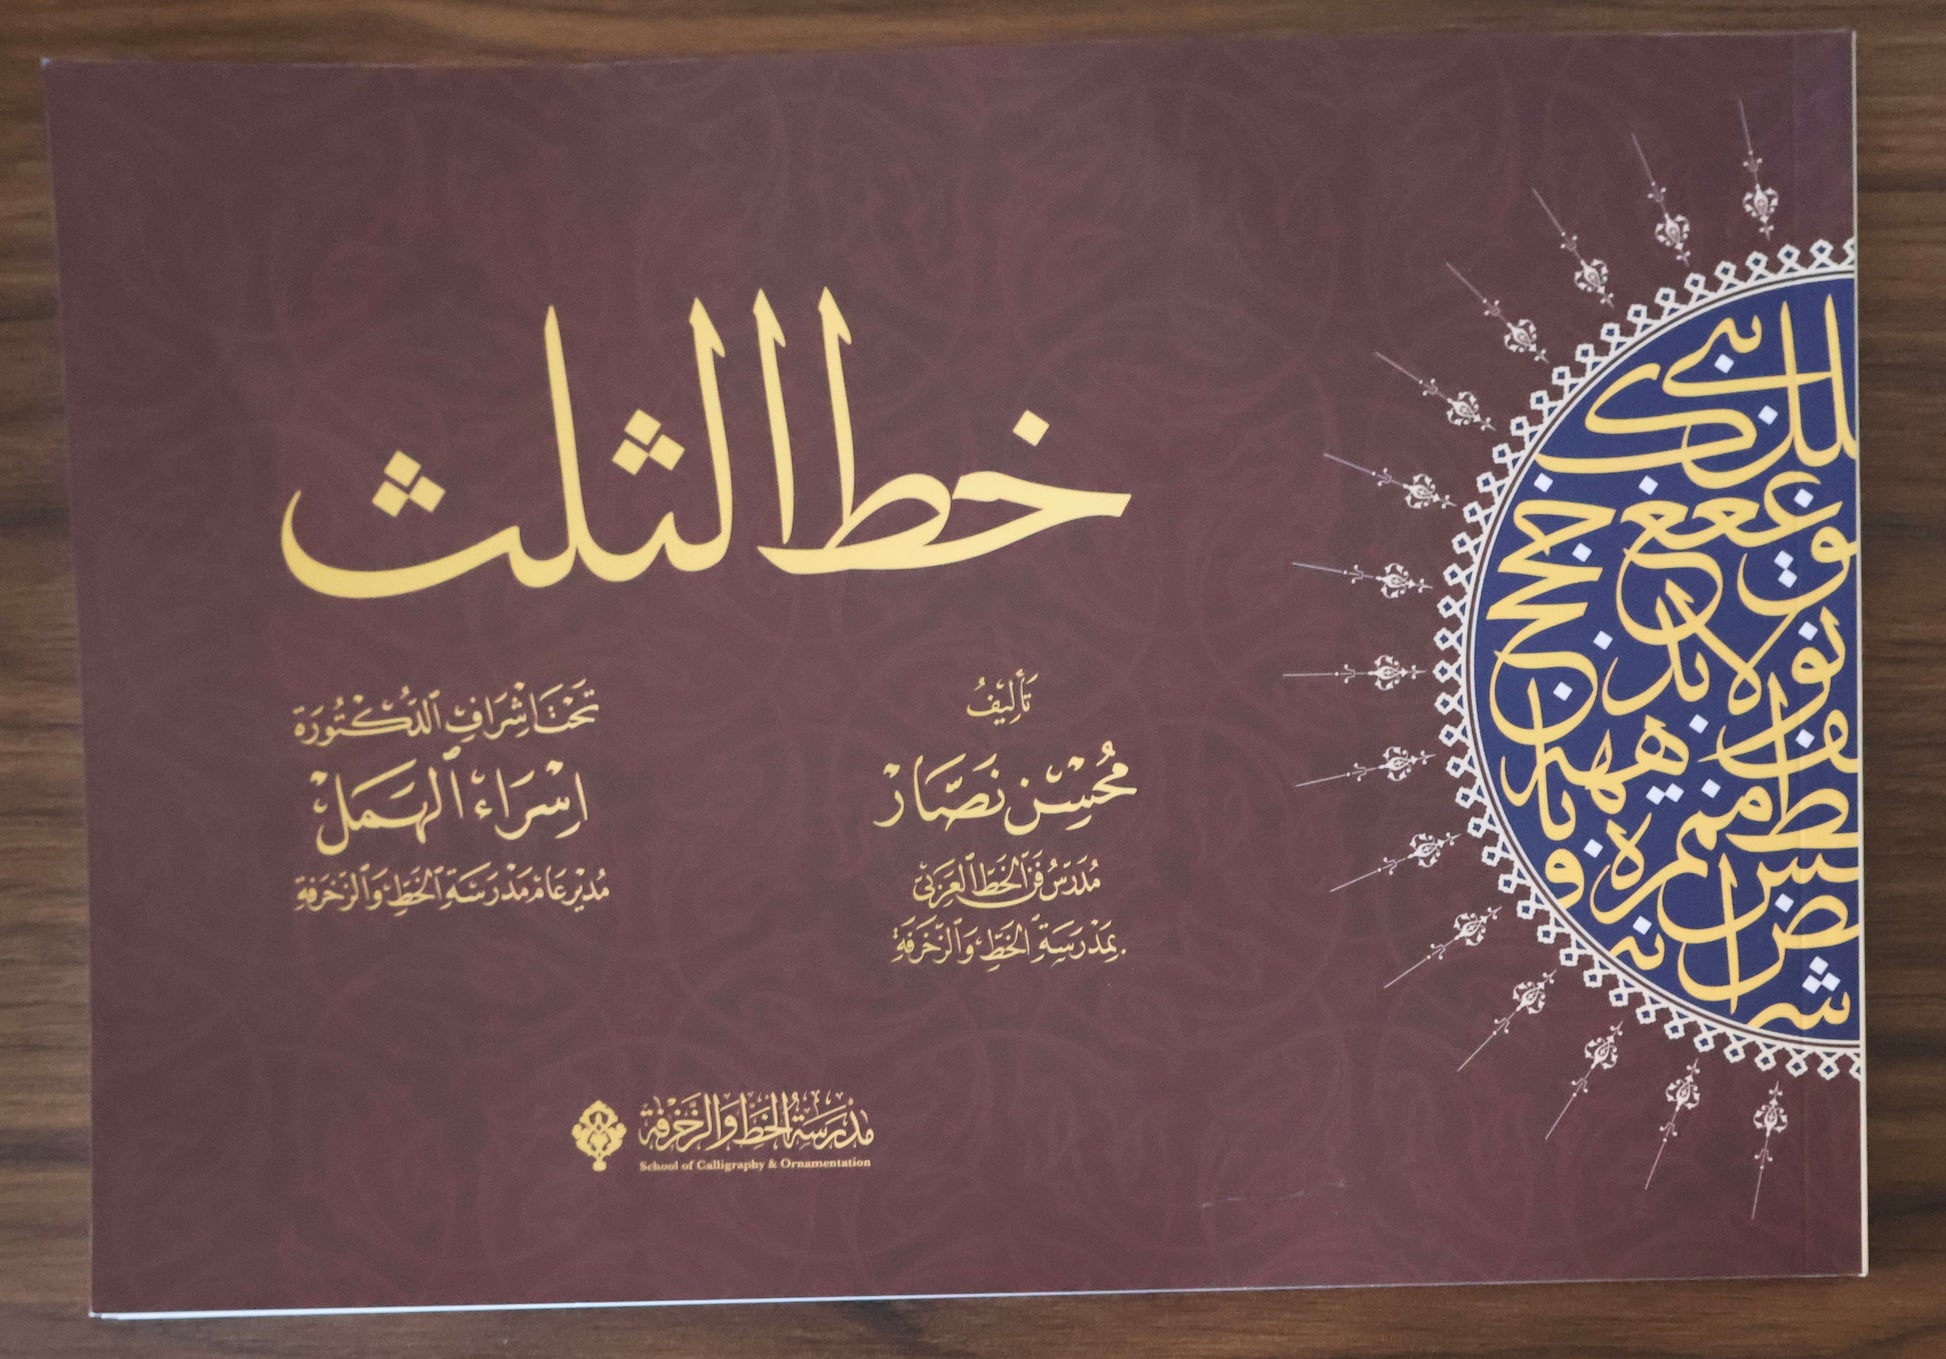 خط الثلث
تَأْلِيفُ
مُحْسِنْ نَصَّارْ
مُدَرِّسُ فَنِّ الخَطِّ العَرَبِيِّ
بِمَدْرَسَةِ الخَطِّ وَالزَّخْرَفَةِ
تَحْتَ اِشْرَافِ الدُّكْتُورَةِ
اِسْرَاءْ الهَمَلْ
مُدِيْر عَامْ مَدْرَسَةِ الخَطِّ وَالزَّخْرَفَةِ
مَدْرَسَةُ الخَطِّ وَالزَّخْرَفَةِ
School of Calligraphy & Ornamentation